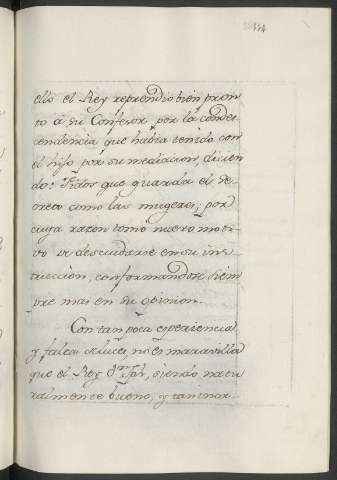 ello el Rey reprendio bien pron
to á su Confesor, por la conde
cendencia que habia tenido con
el hijo por su mediacion, dicien
do: Fidos que guarda el Se
creto como las mugeres; por
cuya razon tomo nuevo moti
vo de descuidarse en su ins
truccion, conformandose siem
pre mas en su opinion.
Con tan poca esperiencia,
y falta de luces, no es maravilla
que el Rey Dn. , siendo natu
ralmente bueno, y tan inex-